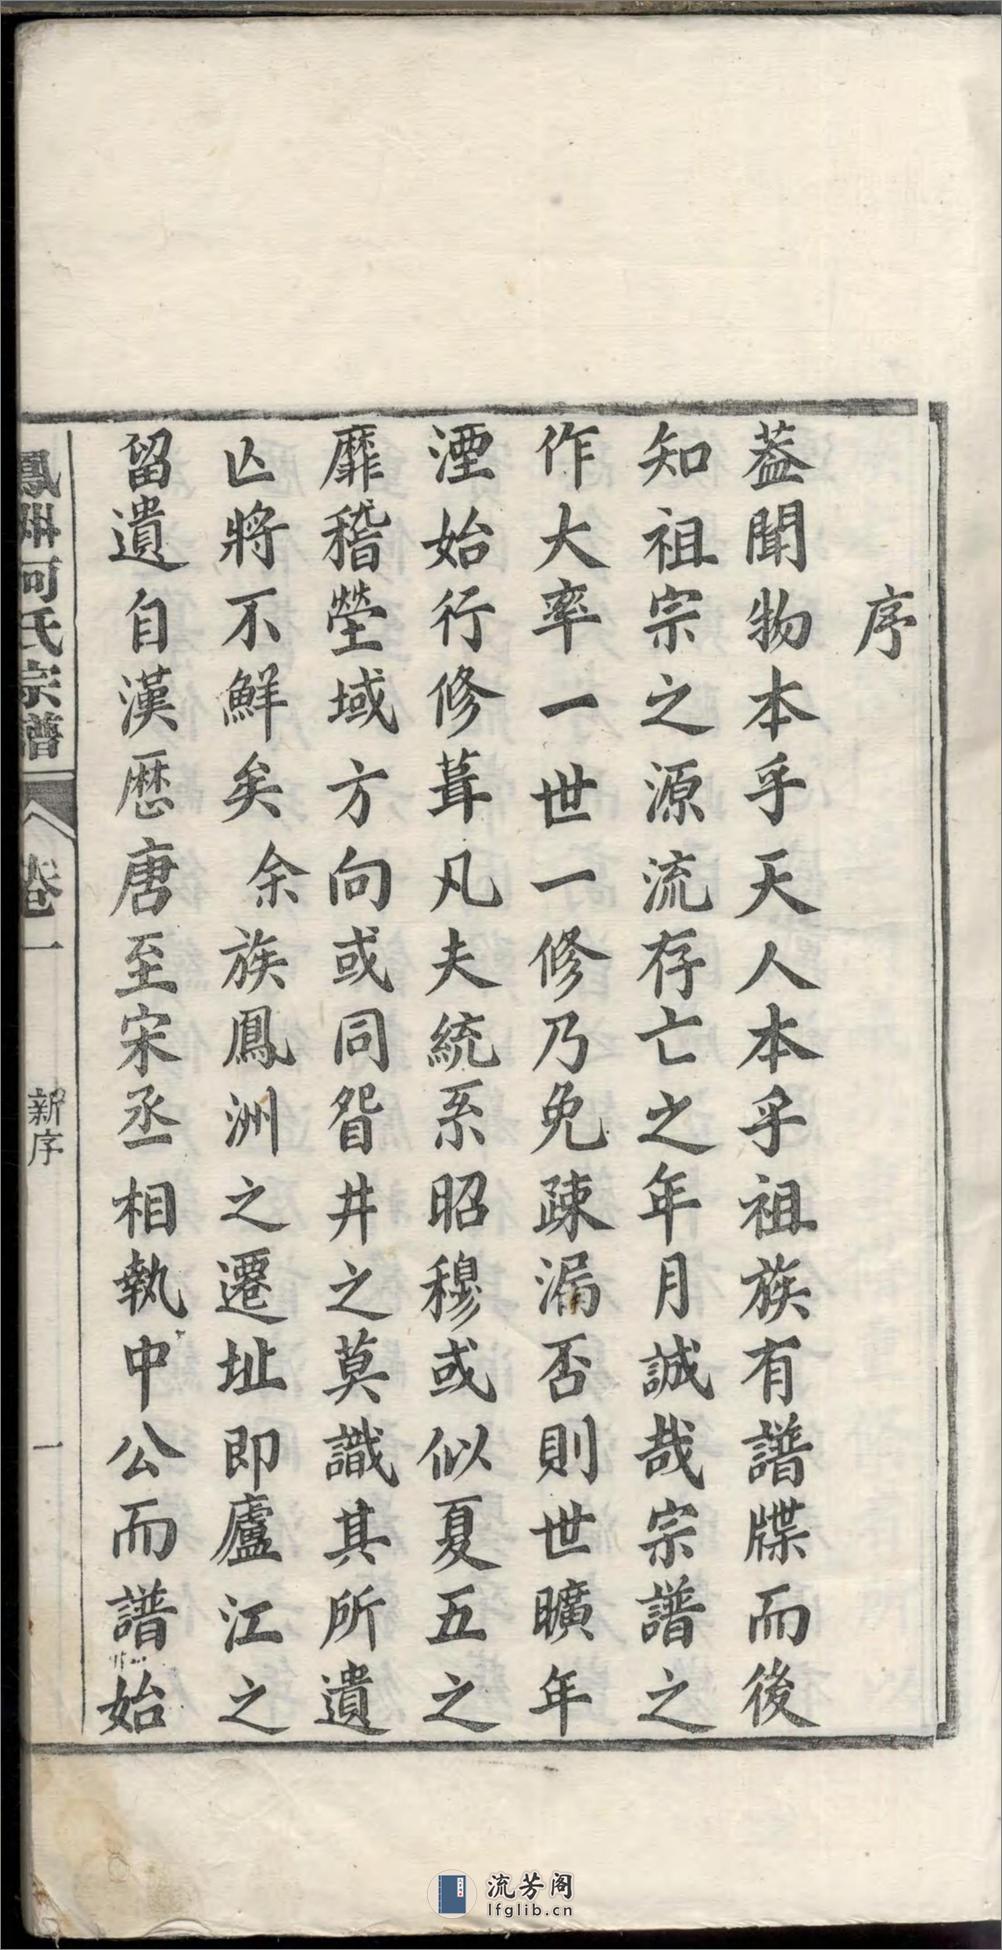 序
葢聞物本乎天人本乎祖族有譜牒而後
知祖宗之源流存亡之年月誠哉宗譜之
作大率一世一修乃免疎漏否則世曠年
湮始行修葺凡夫統系昭穆或似夏五之
靡稽塋域方向或同眢井之莫識其所遺
亾將不鮮矣余族鳳洲之遷址即廬江之
留遺自漢歴唐至宋丞相執中公而譜始
鳳洲何氏宗譜
卷一
新序
一
流芳阁
lfglib.cn